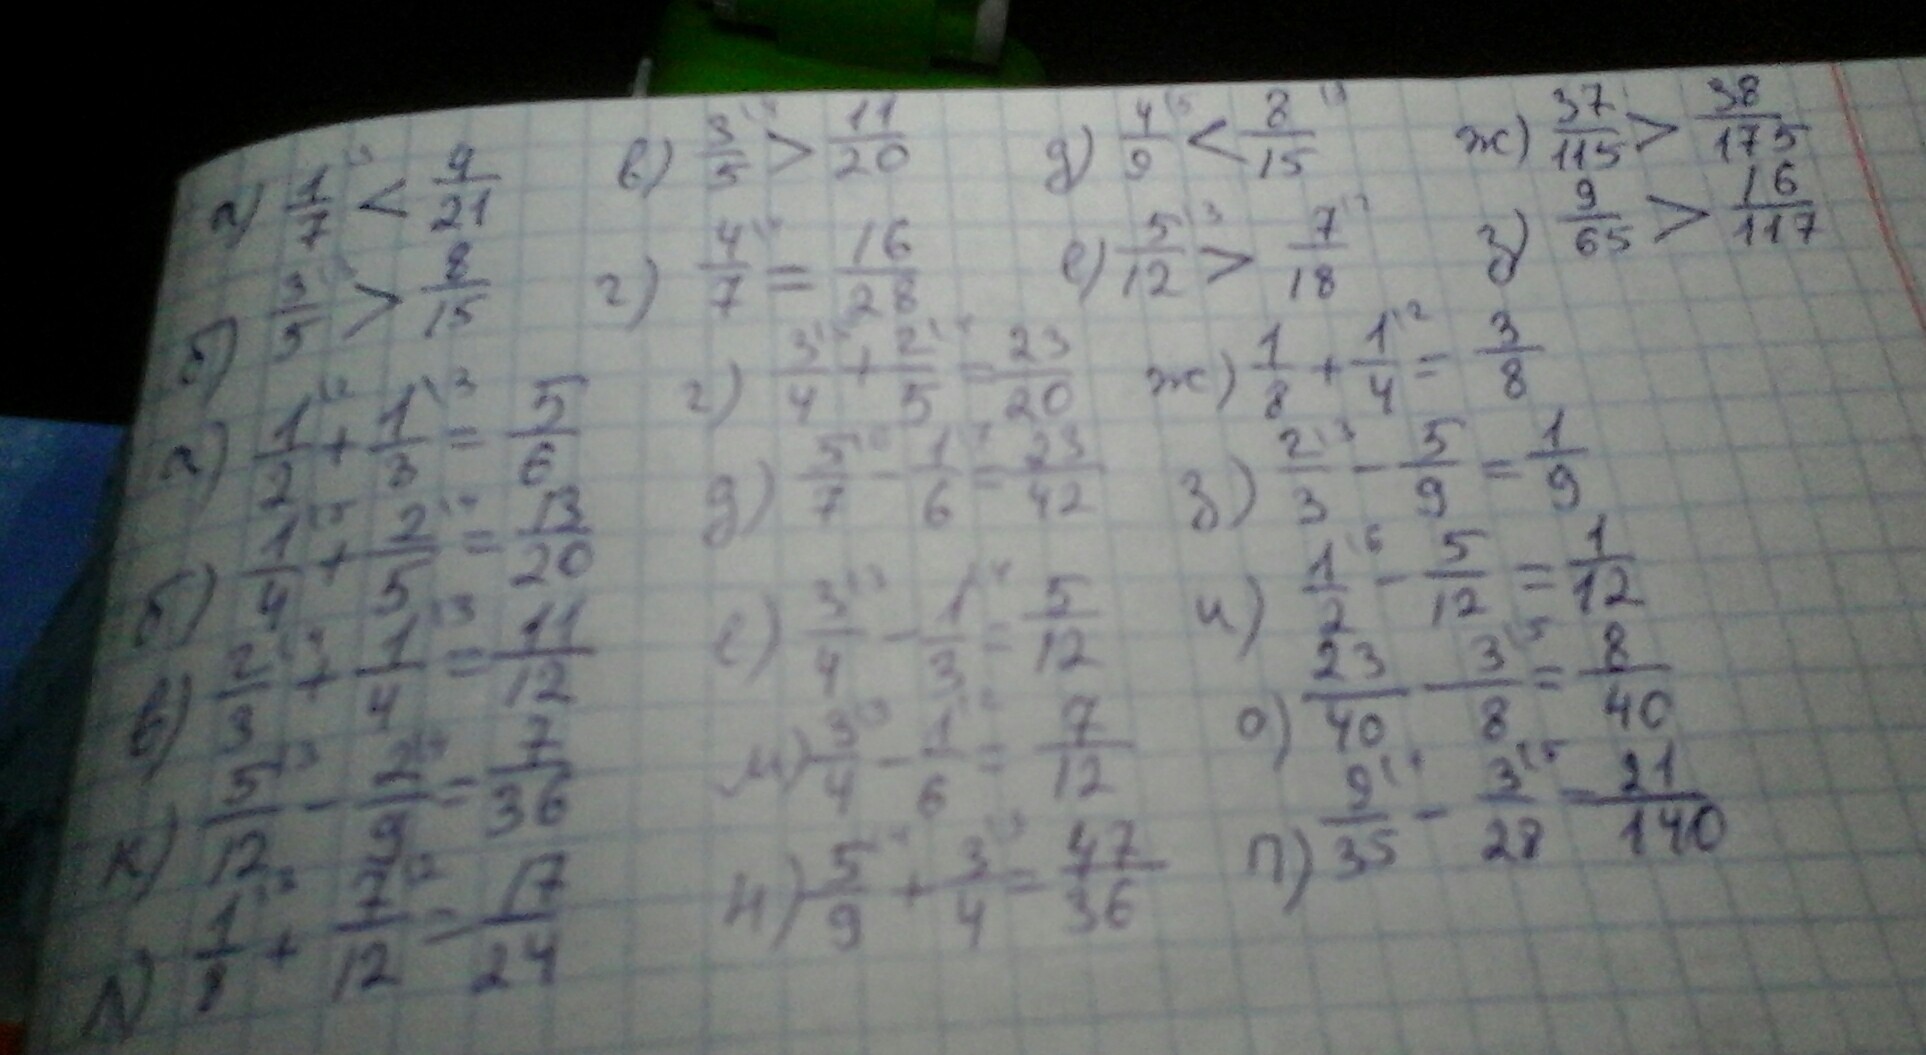 а) 1/7 < 4/21 в) 3/5 > 11/20 д) 4/9 < 8/15 ж) 37/115 > 38/175
б) 3/5 > 8/15 г) 4/7 = 16/28 е) 5/12 > 7/18 з) 9/65 > 16/117
а) 1/2 + 1/3 = 5/6 г) 3/4 + 2/5 = 23/20 ж) 1/8 + 1/4 = 3/8
б) 1/4 + 2/5 = 13/20 д) 5/7 - 1/6 = 23/42 з) 2/3 - 5/9 = 1/9
в) 2/3 + 1/4 = 11/12 е) 3/4 - 1/3 = 5/12 и) 1/2 - 5/12 = 1/12
к) 5/12 - 2/9 = 7/36 м) 3/4 - 1/6 = 7/12 о) 23/40 - 3/8 = 8/40
л) 1/8 + 7/12 = 17/24 н) 5/9 + 3/4 = 47/36 п) 9/35 - 3/28 = 21/140